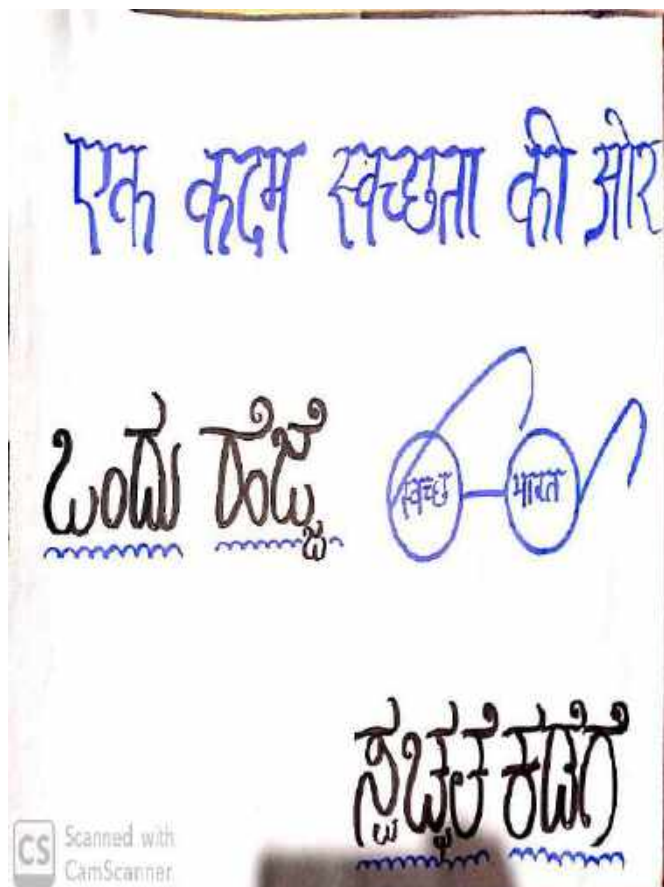 एक कदम स्वच्छता की ओर
ಒಂದು ಹೆಜ್ಜೆ
स्वच्छ भारत
ಸ್ವಚ್ಛತೆ ಕಡೆಗೆ
CS Scanned with
CamScanner